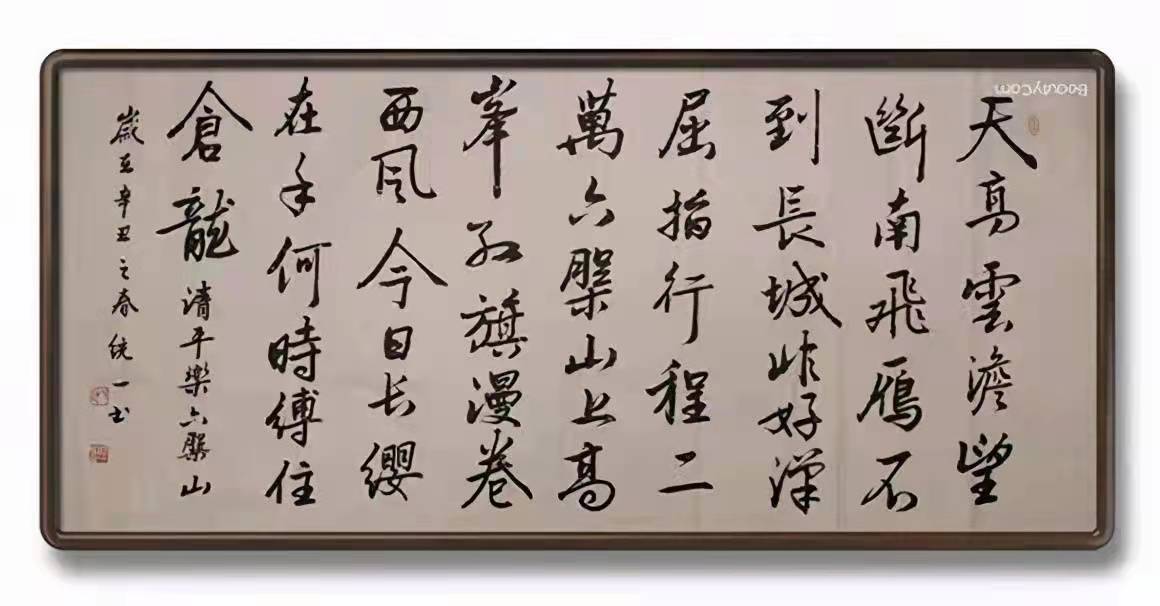 天高雲澹望
斷南飛鴈不
到長城非好漢
屈指行程二
萬六槃山上高
峯紅旗漫卷
西风今日长纓
在手何時縛住
倉龍
清平樂六槃山
歲在辛丑之春統一书
BeautyCam